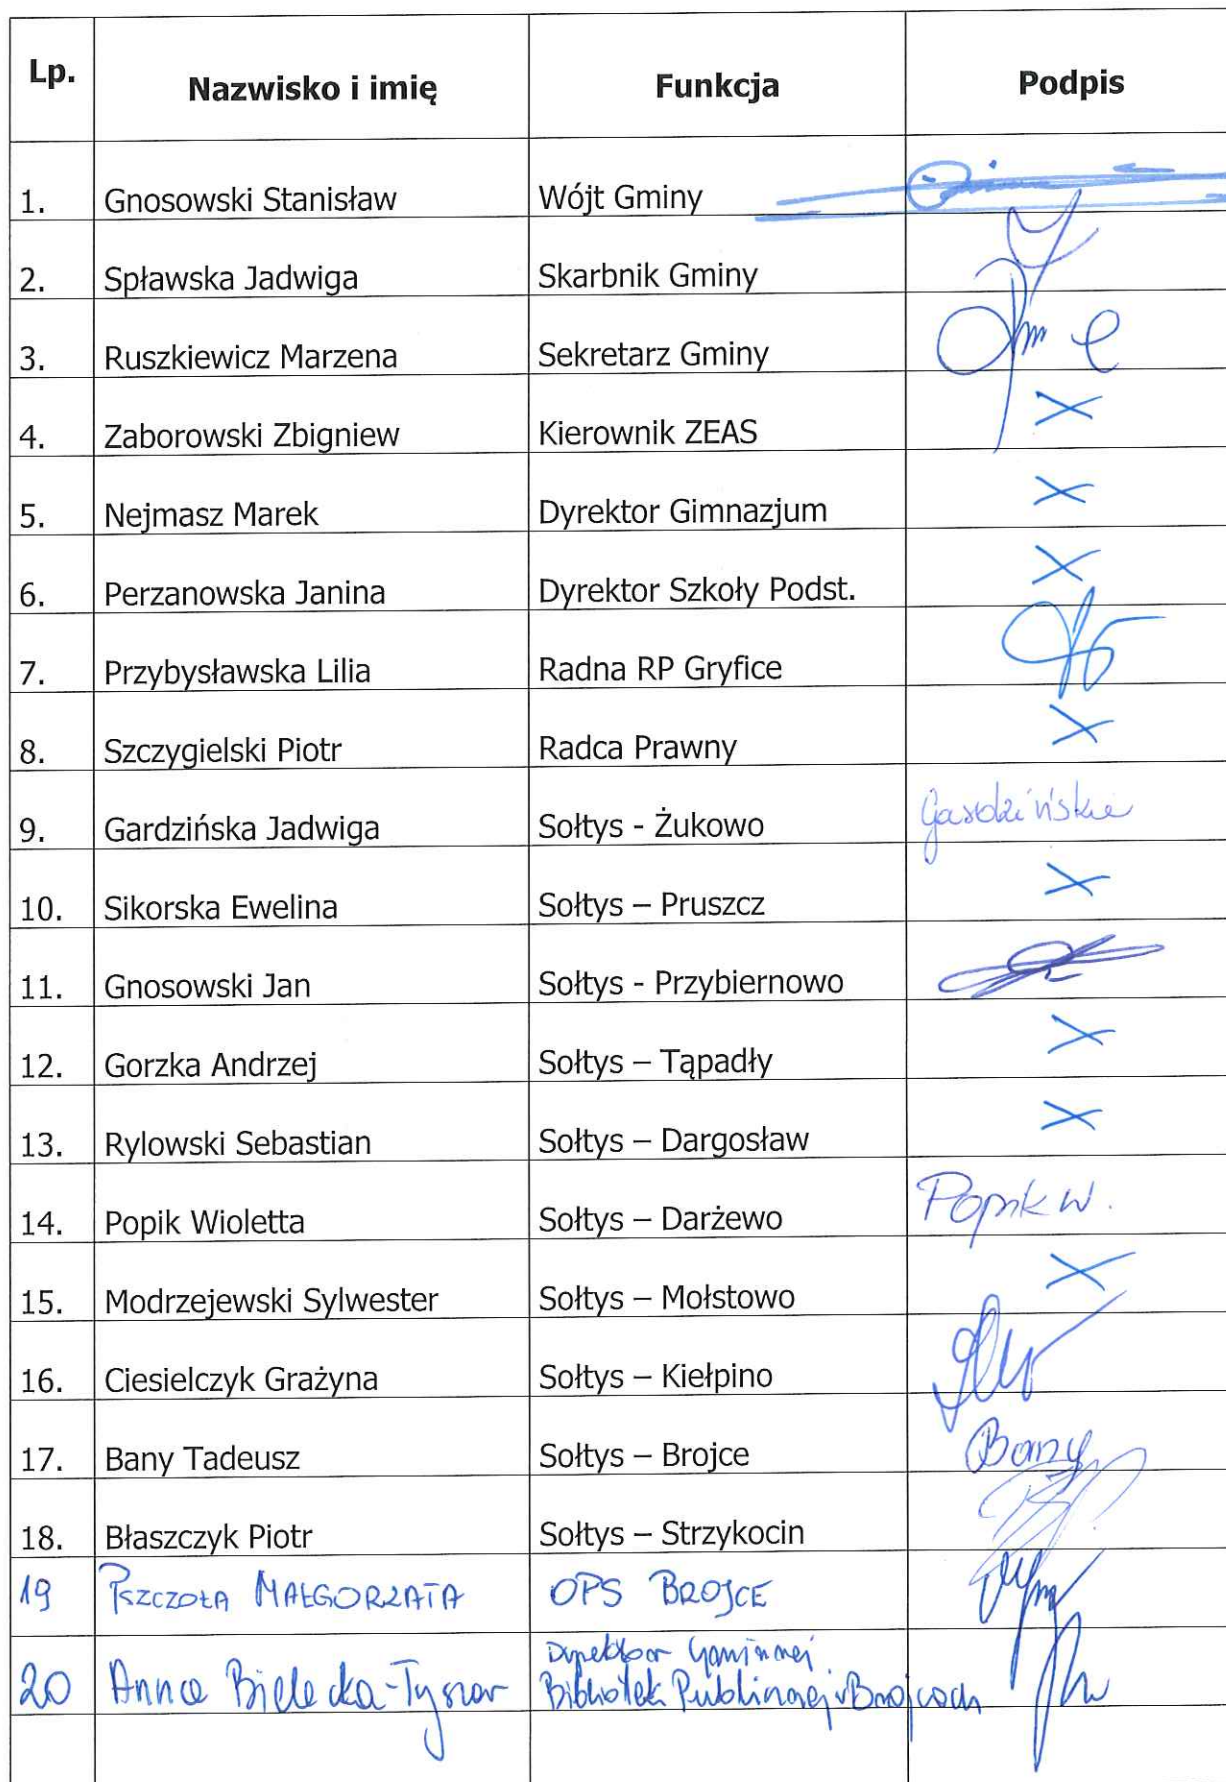 Lp. Nazwisko i imię Funkcja Podpis
1. Gnosowski Stanisław Wójt Gminy
2. Spławska Jadwiga Skarbnik Gminy
3. Ruszkiewicz Marzena Sekretarz Gminy
4. Zaborowski Zbigniew Kierownik ZEAS X
5. Nejmasz Marek Dyrektor Gimnazjum X
6. Perzanowska Janina Dyrektor Szkoły Podst. X
7. Przybysławska Lilia Radna RP Gryfice
8. Szczygielski Piotr Radca Prawny X
9. Gardzińska Jadwiga Sołtys - Żukowo Gardzińska
10. Sikorska Ewelina Sołtys – Pruszcz X
11. Gnosowski Jan Sołtys - Przybiernowo
12. Gorzka Andrzej Sołtys – Tąpadły X
13. Rylowski Sebastian Sołtys – Dargosław X
14. Popik Wioletta Sołtys – Darżewo Popik W.
15. Modrzejewski Sylwester Sołtys – Mołstowo X
16. Ciesielczyk Grażyna Sołtys – Kiełpino
17. Bany Tadeusz Sołtys – Brojce Bany
18. Błaszczyk Piotr Sołtys – Strzykocin
19 PSZCZOŁA MAŁGORZATA OPS BROJCE
Dyrektor Gminnej
20 Anna Bielecka-Tyszer Biblioteki Publicznej w Brojcach